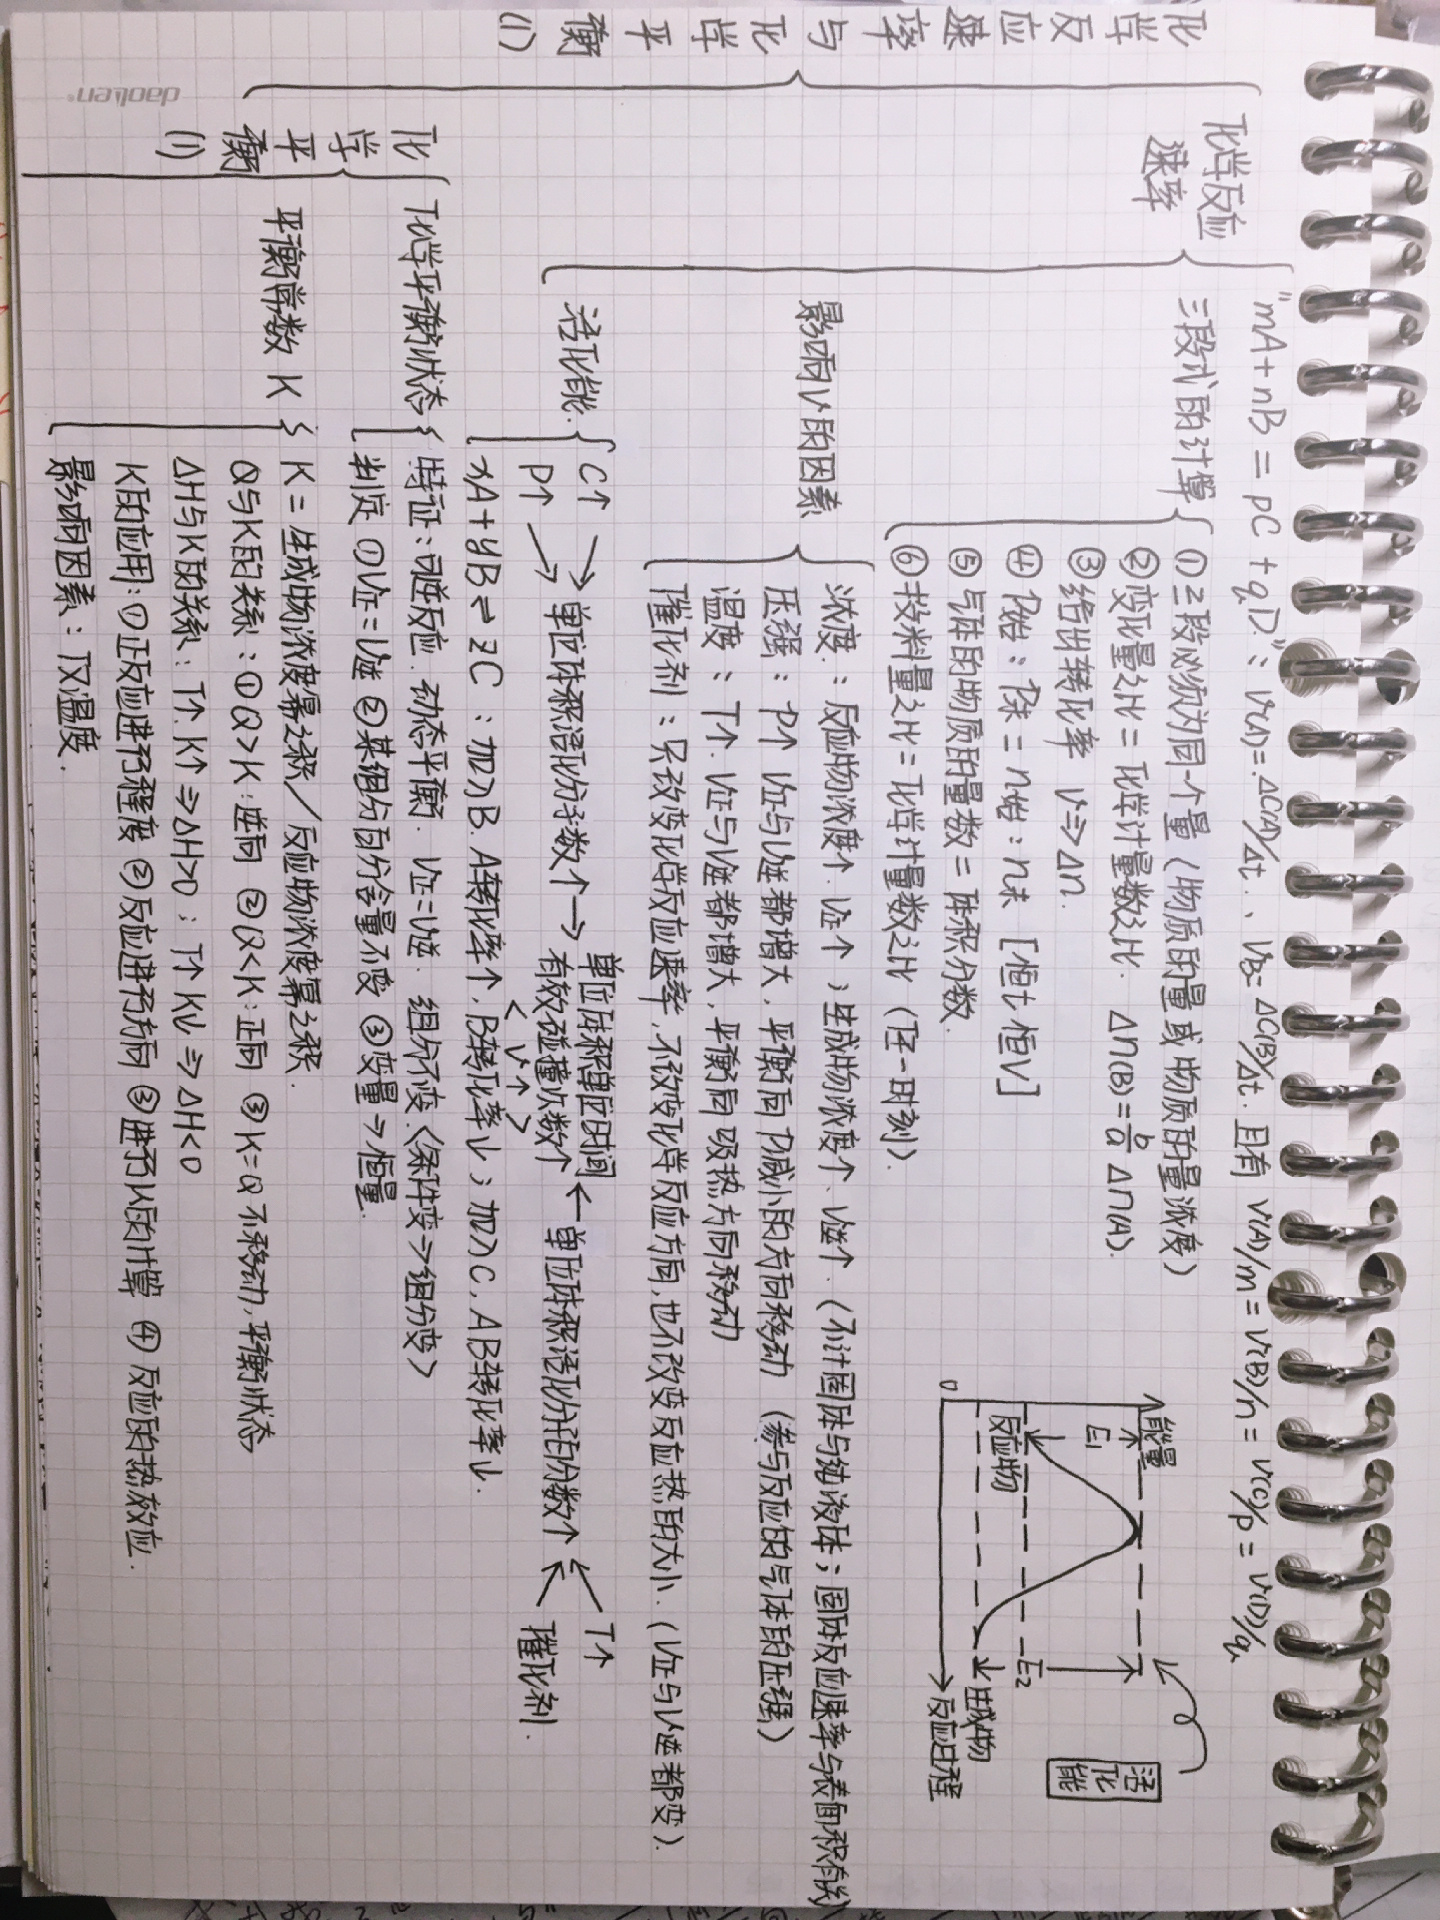 化学反应速率与化学平衡(1)
化学反应
速率
"mA+nB=pC+qD": V(A)=ΔC(A)/Δt、VB=ΔC(B)/Δt. 且有 V(A)/m=V(B)/n=V(C)/p=V(D)/q
三段式的计算
①三段必须为同一个量(物质的量或物质的量浓度)
②变化量之比=化学计量数之比. Δn(B)=b/a Δn(A).
③给出转化率 V⇒Δn.
④P始:P末=n始:n末 [恒t恒V]
⑤与硅的物质的量数=体积分数.
⑥投料量之比=化学计量数之比(任一时刻).
能量
E1
反应物
E2
生成物
0
反应过程
活化能
影响V的因素
浓度:反应物浓度↑.V正↑;生成物浓度↑.V逆↑.(不计固体与纯液体;固体反应速率与表面积有关)
压强:P↑ V正与V逆都增大,平衡向P减小的方向移动(参与反应的气体的压强)
温度:T↑.V正与V逆都增大,平衡向吸热方向移动
催化剂:只改变化学反应速率,不改变化学反应方向,也不改变反应热的大小.(V正与V逆都变).
活化能.
C↑
P↑
→单位体积活化分子数↑→
单位体积单位时间
有效碰撞次数↑
<V↑>
←单位体积活化分子百分数↑
T↑
催化剂.
化学平衡(1)
化学平衡状态
xA+yB⇌zC:加入B.A转化率↑,B转化率↓;加入C,AB转化率↓.
特征:可逆反应.动态平衡.V正=V逆.组分不变.<条件变→组分变>
判定 ①V正=V逆 ②某组分百分含量不变 ③变量→恒量.
平衡常数 K
K=生成物浓度幂之积/反应物浓度幂之积.
Q与K的关系:①Q>K:逆向 ②Q<K:正向 ③K=Q不移动,平衡状态
ΔH与K的关系:T↑.K↑⇒ΔH>0;T↑K↓⇒ΔH<0
K的应用:①正反应进行程度 ②反应进行方向 ③进行K的计算 ④反应的热效应.
影响因素:仅温度.
daolen®